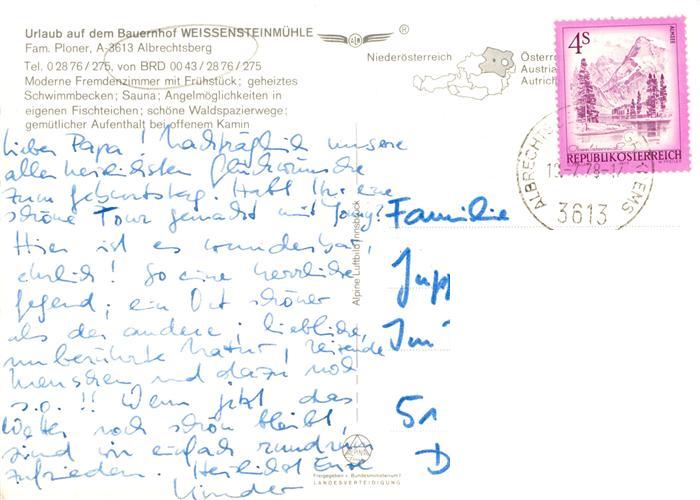 Urlaub auf dem Bauernhof WEISSENSTEINMÜHLE
Fam. Ploner, A-3613 Albrechtsberg
Tel. 0 28 76 / 275, von BRD 00 43 / 28 76 / 275
Moderne Fremdenzimmer mit Frühstück; geheiztes
Schwimmbecken; Sauna; Angelmöglichkeiten in
eigenen Fischteichen; schöne Waldspazierwege;
gemütlicher Aufenthalt bei offenem Kamin
Niederösterreich
Österr
Austria
Autrich
4 S
ALMSEE
Oberösterreich
REPUBLIK ÖSTERREICH
ALBRECHTS
KREMS
3613
Lieber Papa! Nachträglich unsere
allerherzlichsten Glückwünsche
zum Geburtstag. Habt Ihr eine
schöne Tour gemacht mit
Hier ist es wunderbar,
ehrlich! So eine herrliche
Gegend, ein Ort schöner
als der andere, liebliche,
unberührte Natur, reizende
Menschen und dazu noch
s.o.!! Wenn jetzt das
Wetter noch schön bleibt,
sind wir einfach rundrum
zufrieden. Herzlichst Eure
Kinder
Familie
51
D
Alpine Luftbild Innsbruck
Freigegeben v. Bundesministerium f.
LANDESVERTEIDIGUNG